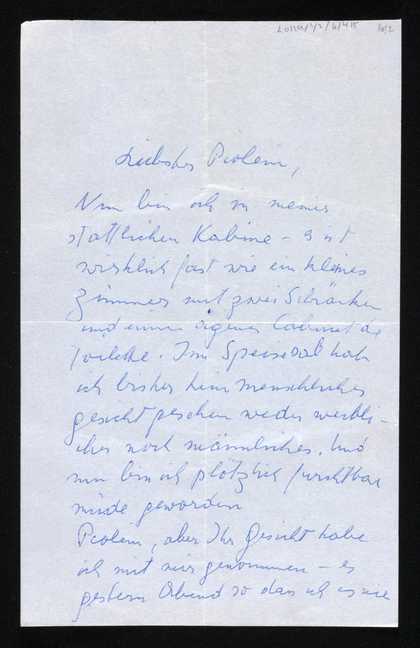 Liebster Piolein,
Nun bin ich in meiner
stattlichen Kabine – es ist
wirklich fast wie ein kleines
Zimmer mit zwei Schränken
und einem eigenen Cabinet de
toilette. Im Speisesal hab
ich bisher kein menschliches
gesicht gesehen weder weibli-
ches noch männliches. Und
nun bin ich plötzlich furchtbar
müde geworden
Piolein, aber Ihr Gesicht habe
ich mit mir genommen – es
gestern Abend so dass ich es nie